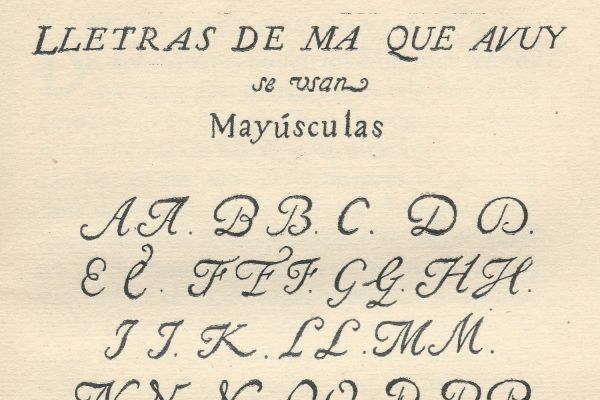 LLETRAS DE MA QUE AVUY
se vsan
Mayúsculas
A A. B B. C. D D.
E E. F F F. G G. H H.
I I. K. L L. M M.
N N N O O P P P